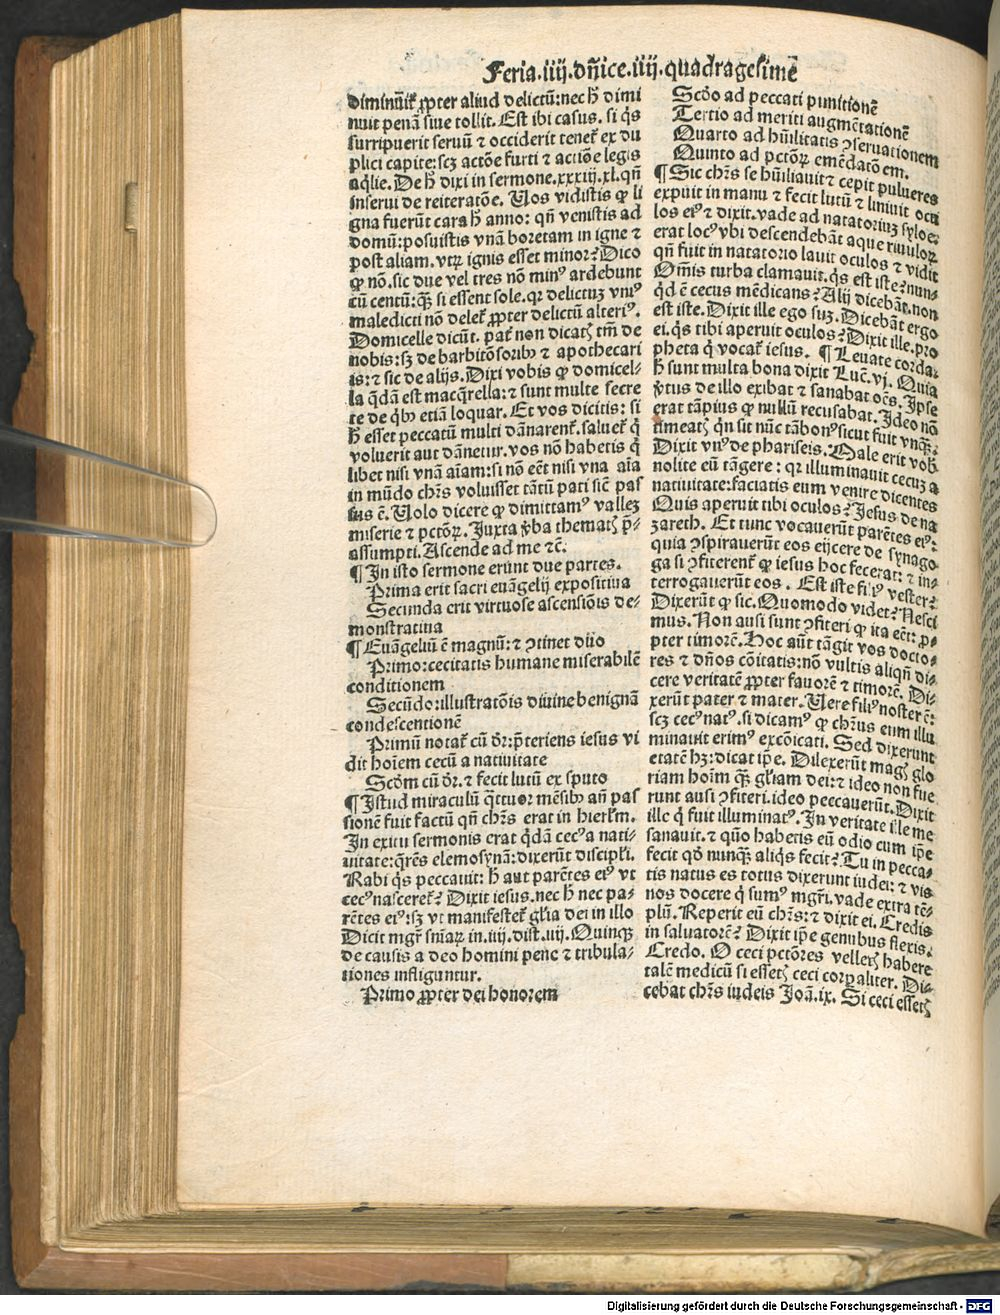 Feria.iiij.dñice.iiij.quadragesimẽ
diminuit̃ ꝓpter aliud delictũ:nec h̃ dimi
nuit penã siue tollit. Est ibi casus. si q̃s
surripuerit seruũ ⁊ occiderit tenet̃ ex du
plici capite:scꝫ actõe furti ⁊ actiõe legis
aq̃lie. De h̃ dixi in sermone.xxxiij.xl.qñ
inserui de reiteratõe. Uos vidistis ꝙ li
gna fuerũt cara h̃ anno: qñ venistis ad
domũ:posuistis vnã boretam in igne ⁊
post aliam. vtꝝ ignis esset minor? Dico
ꝙ nõ. sic due vel tres nõ minꝰ ardebunt
cũ centũ:q̃ꝫ si essent sole. qꝛ delictuꝫ vniꝰ
maledicti nõ delet̃ ꝓpter delictũ alteriꝰ.
Domicelle dicũt. pat̃ non dicatꝭ tm̃ de
nobis:sꝫ de barbitõsoribꝰ ⁊ apothecari
is:⁊ sic de alijs. Dixi vobis ꝙ domicel-
la q̃dã est macq̃rella:⁊ sunt multe secre
te de q̃bꝰ etiã loquar. Et vos dicitis: si
h̃ esset peccatũ multi dãnarent̃. saluet̃ q̃
voluerit aut dãnetur. vos nõ habetis q̃
libet nisi vnã aĩam:si nõ eẽt nisi vna aĩa
in mũdo chr̃s voluisset tãtũ pati sic̃ pas
sus ẽ. Uolo dicere ꝙ dimittamꝰ valleꝫ
miserie ⁊ pctõꝝ. Juxta v̾ba thematꝭ p̃-
assumpti. Ascende ad me ⁊c̃.
¶ In isto sermone erũnt due partes.
Prima erit sacri euãgelij expositiua
Secunda erit virtuose ascensiõis de-
monstratiua
¶ Euãgeliũ ẽ magnũ:⁊ ꝯtinet duo
Primo:cecitatis humane miserabilẽ
conditionem
Secũdo:illustratõis diuine benignã
condescentionẽ
Primũ notat̃ cũ dr̃:p̃teriens iesus vi
dit hoĩem cecũ a natiuitate
Scdm̃ cũ dr̃. ⁊ fecit lutũ ex sputo
¶ Istud miraculũ q̃ttuor mẽsibꝰ añ pas
sionẽ fuit factũ qñ chr̃s erat in hierl̃m.
In exitu sermonis erat q̃dã cecꝰ a nati-
uitate:q̃rẽs elemosynã:dixerũt discipl̃i.
Rabi q̃s peccauit: h̃ aut parẽtes eiꝰ vt
cecꝰ nasceret̃? Dixit iesus. nec h̃ nec pa-
rẽtes eiꝰ:sꝫ vt manifestet̃ gl̃ia dei in illo
Dicit mgr̃ snĩaꝝ in.iiij.dist.iiij.Quinqꝫ
de causis a deo homini pene ⁊ tribula-
tiones infliguntur.
Primo ꝓpter dei honorem
Scdõ ad peccati punitionẽ
Tertio ad meriti augmẽtationẽ
Quarto ad hũilitatis ꝯseruationem
Quinto ad pctõꝝ emẽdatõem.
¶ Sic chr̃s se hũiliauit ⁊ cepit pulueres
expuit in manu ⁊ fecit lutũ ⁊ liniuit ocu
los eiꝰ ⁊ dixit. vade ad natatoriuꝫ syloe:
erat locꝰ vbi descendebãt aque riuuloꝝ
qñ fuit in natatorio lauit oculos ⁊ vidit
Om̃is turba clamauit. q̃s est iste? nun-
q̃d ẽ cecus mẽdicans? Alij dicebãt. non
est iste. Dixit ille ego suꝫ. Dicebãt ergo
ei. q̃s tibi aperuit oculos? Dixit ille. pro
pheta q̃ vocat̃ iesus. ¶ Leuate corda:
h̃ sunt multa bona dixit Luc̃. vj. Quia
v̾tus de illo exibat ⁊ sanabat oẽs. Ipse
erat tãpius ꝙ nullũ recusabat. Ideo nõ
timeatꝭ qñ sit nũc tãbonꝰ sicut fuit vnq̃ꝫ.
Dixit vnꝰ de phariseis. Male erit vob̃
nolite eũ tãgere: qꝛ illuminauit cecuꝫ a
natiuitate:faciatis eum venire dicentes
Quis aperuit tibi oculos? Jesus de na
zareth. Et tunc vocauerũt parẽtes eiꝰ:
quia ꝯspirauerũt eos eijcere de synago
ga si ꝯfiterent̃ ꝙ iesus hoc fecerat: ⁊ in-
terrogauerũt eos. Est iste filiꝰ vester?
Dixerũt ꝙ sic. Quomodo videt? Nesci
mus. Non ausi sunt ꝯfiteri ꝙ ita eẽt: ꝓ-
pter timorẽ. Hoc aũt tãgit vos docto-
res ⁊ dños cõitatis:nõ vultis aliqñ di-
cere veritatẽ ꝓpter fauorẽ ⁊ timorẽ. Di-
xerũt pater ⁊ mater. Uere filiꝰ noster ẽ:
scꝫ cecꝰ natꝰ. si dicamꝰ ꝙ chr̃us eum illu
minauit erimꝰ excõicati. Sed dixerunt
etatẽ hꝫ:dicat ip̃e. Dilexerũt magꝭ glo
riam hoĩm q̃ꝫ gl̃iam dei:⁊ ideo non fue
runt ausi ꝯfiteri. ideo peccauerũt. Dixit
ille q̃ fuit illuminatꝰ. In veritate ille me
sanauit. ⁊ quõ habetis eũ odio cum ip̃e
fecit qd̃ nunq̃ꝫ aliq̃s fecit? Tu in pecca-
tis natus es totus dixerunt iudei: ⁊ vis
nos docere q̃ sumꝰ mgr̃i. vade extra tẽ-
plũ. Reperit eũ chr̃s:⁊ dixit ei. Credis
in saluatorẽ? Dixit ip̃e genubus flexis.
Credo. O ceci pctõres velletꝭ habere
talẽ medicũ si essetꝭ ceci corꝑaliter. Di-
cebat chr̃s iudeis Joã. ix. Si ceci essetꝭ
Digitalisierung gefördert durch die Deutsche Forschungsgemeinschaft - DFG